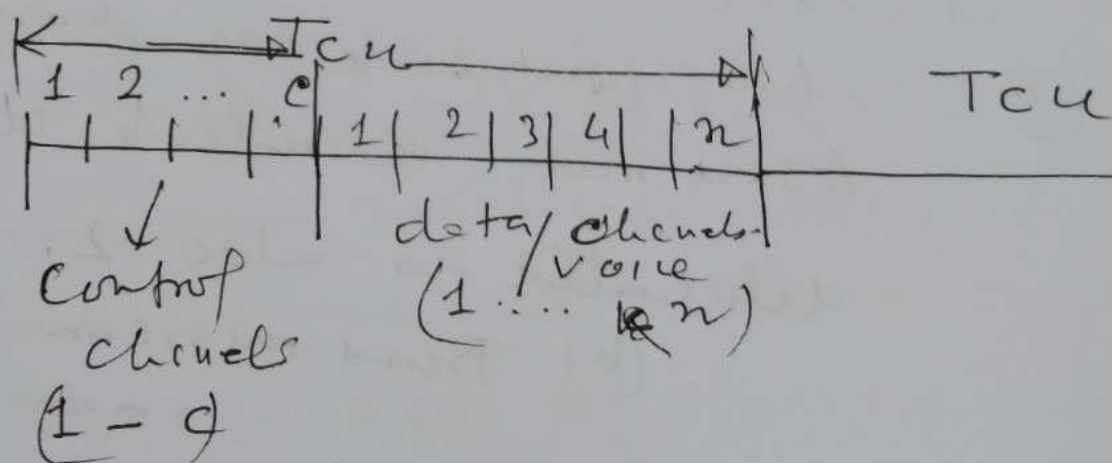 Tcu
1 2 ... c 1 2 3 4 n
Tcu
Control
channels
(1 - c)
data/voice
channels
(1 .... n)